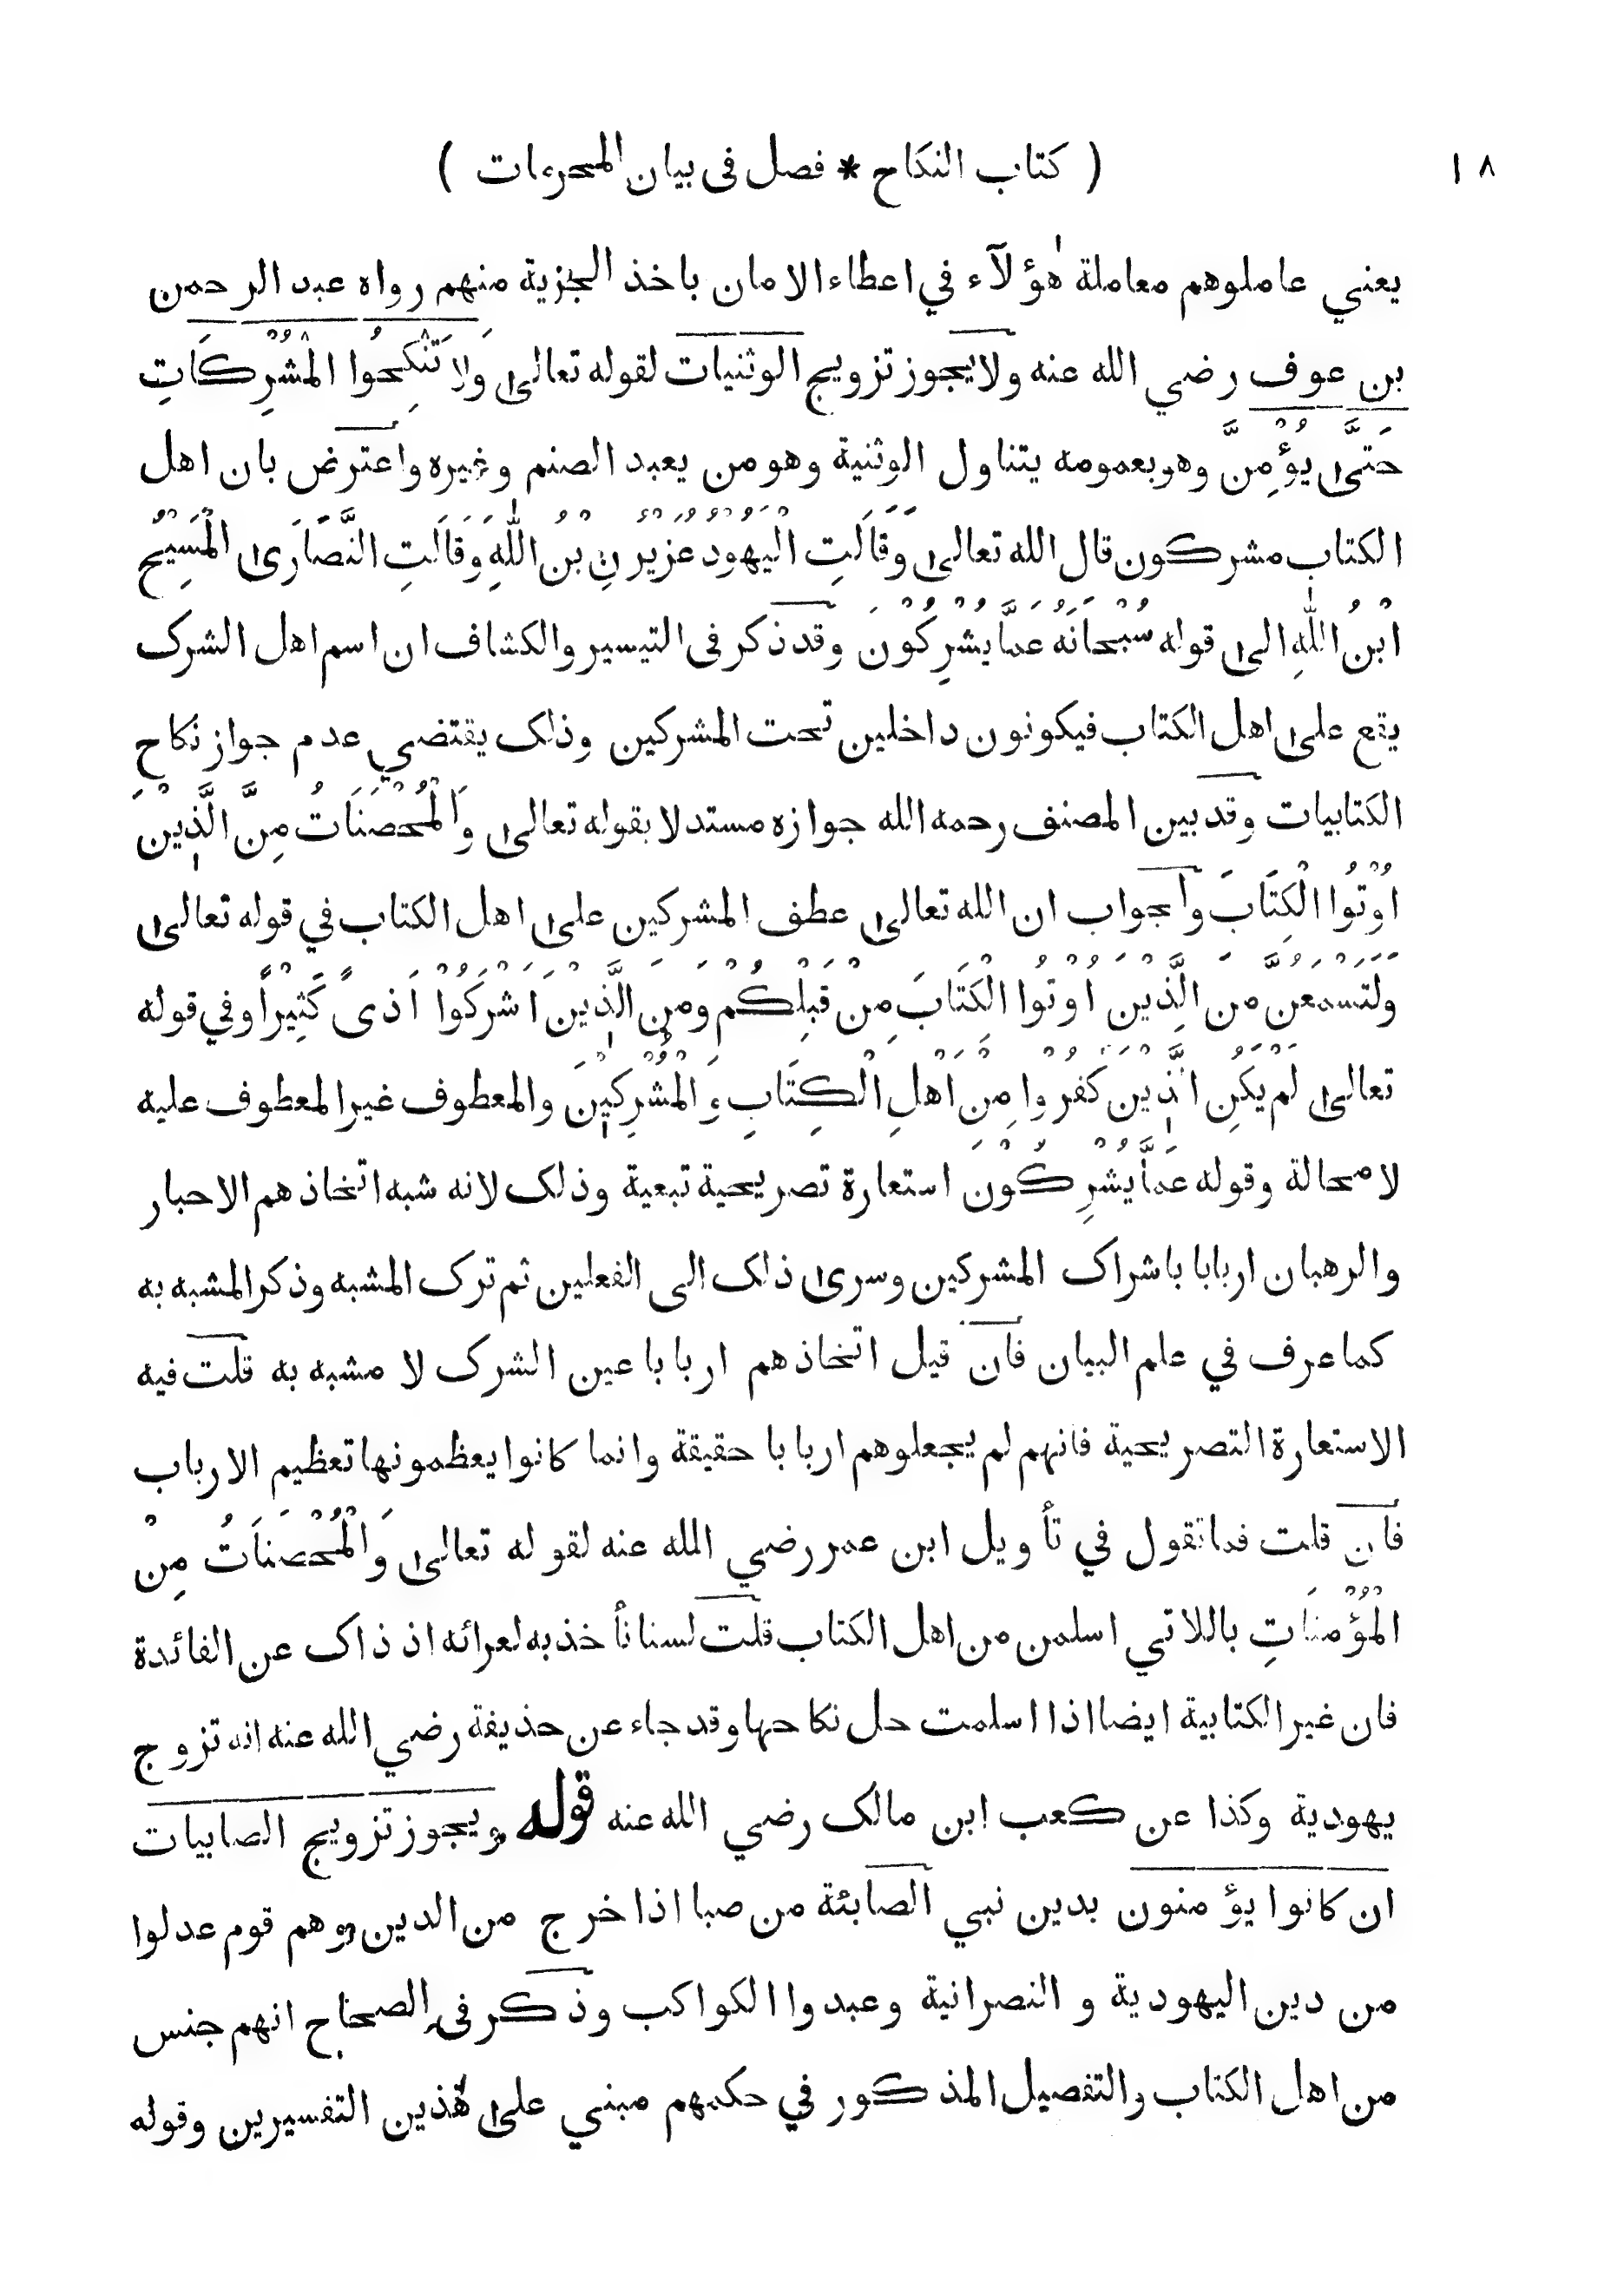 ١٨
( كتاب النكاح * فصل فى بيان المحرمات )
يعني عاملوهم معاملة هٰؤلآء في اعطاء الامان باخذ الجزية منهم رواه عبد الرحمن
بن عوف رضي الله عنه ولا يجوز تزويج الوثنيات لقوله تعالىٰ وَلَا تَنْكِحُوا الْمُشْرِكَاتِ
حَتّىٰ يُؤْمِنَّ وهو بعمومه يتناول الوثنية وهو من يعبد الصنم وغيره واعترض بان اهل
الكتاب مشركون قال الله تعالىٰ وَقَالَتِ الْيَهُودُ عُزَيْرُ نِ بْنُ اللّٰهِ وَقَالَتِ النَّصَارَىٰ الْمَسِيْحُ
ابْنُ اللّٰهِ الىٰ قوله سُبْحَانَهُ عَمَّا يُشْرِكُوْنَ وقد ذكر فى التيسير والكشاف ان اسم اهل الشرك
يقع علىٰ اهل الكتاب فيكونون داخلين تحت المشركين وذلك يقتضي عدم جواز نكاح
الكتابيات وقد بين المصنف رحمه الله جوازه مستدلا بقوله تعالىٰ وَالْمُحْصَنَاتُ مِنَ الَّذِيْنَ
اُوْتُوا الْكِتَابَ والجواب ان الله تعالىٰ عطف المشركين علىٰ اهل الكتاب في قوله تعالىٰ
وَلَتَسْمَعُنَّ مِنَ الَّذِيْنَ اُوْتُوا الْكِتَابَ مِنْ قَبْلِكُمْ وَمِنَ الَّذِيْنَ اَشْرَكُوْا اَذىً كَثِيْرًا وفي قوله
تعالىٰ لَمْ يَكُنِ الَّذِيْنَ كَفَرُوْا مِنْ اَهْلِ الْكِتَابِ وَالْمُشْرِكِيْنَ والمعطوف غير المعطوف عليه
لا محالة وقوله عَمَّا يُشْرِكُوْنَ استعارة تصريحية تبعية وذلك لانه شبه اتخاذهم الاحبار
والرهبان اربابا باشراك المشركين وسرىٰ ذلك الى الفعلين ثم ترك المشبه وذكر المشبه به
كما عرف في علم البيان فان قيل اتخاذهم اربابا عين الشرك لا مشبه به قلت فيه
الاستعارة التصريحية فانهم لم يجعلوهم اربابا حقيقة وانما كانوا يعظمونها تعظيم الارباب
فان قلت فما تقول في تأويل ابن عمر رضي الله عنه لقوله تعالىٰ وَالْمُحْصَنَاتُ مِنْ
الْمُؤْمِنَاتِ باللاتي اسلمن من اهل الكتاب قلت لسنا نأخذ به لعرائه اذ ذاك عن الفائدة
فان غير الكتابية ايضا اذا اسلمت حل نكاحها وقد جاء عن حذيفة رضي الله عنه انه تزوج
يهودية وكذا عن كعب ابن مالك رضي الله عنه قوله ويجوز تزويج الصابيات
ان كانوا يؤمنون بدين نبي الصابئة من صبا اذا خرج من الدين وهم قوم عدلوا
من دين اليهودية و النصرانية وعبدوا الكواكب وذكر في الصحاح انهم جنس
من اهل الكتاب والتفصيل المذكور في حكمهم مبني علىٰ هٰذين التفسيرين وقوله